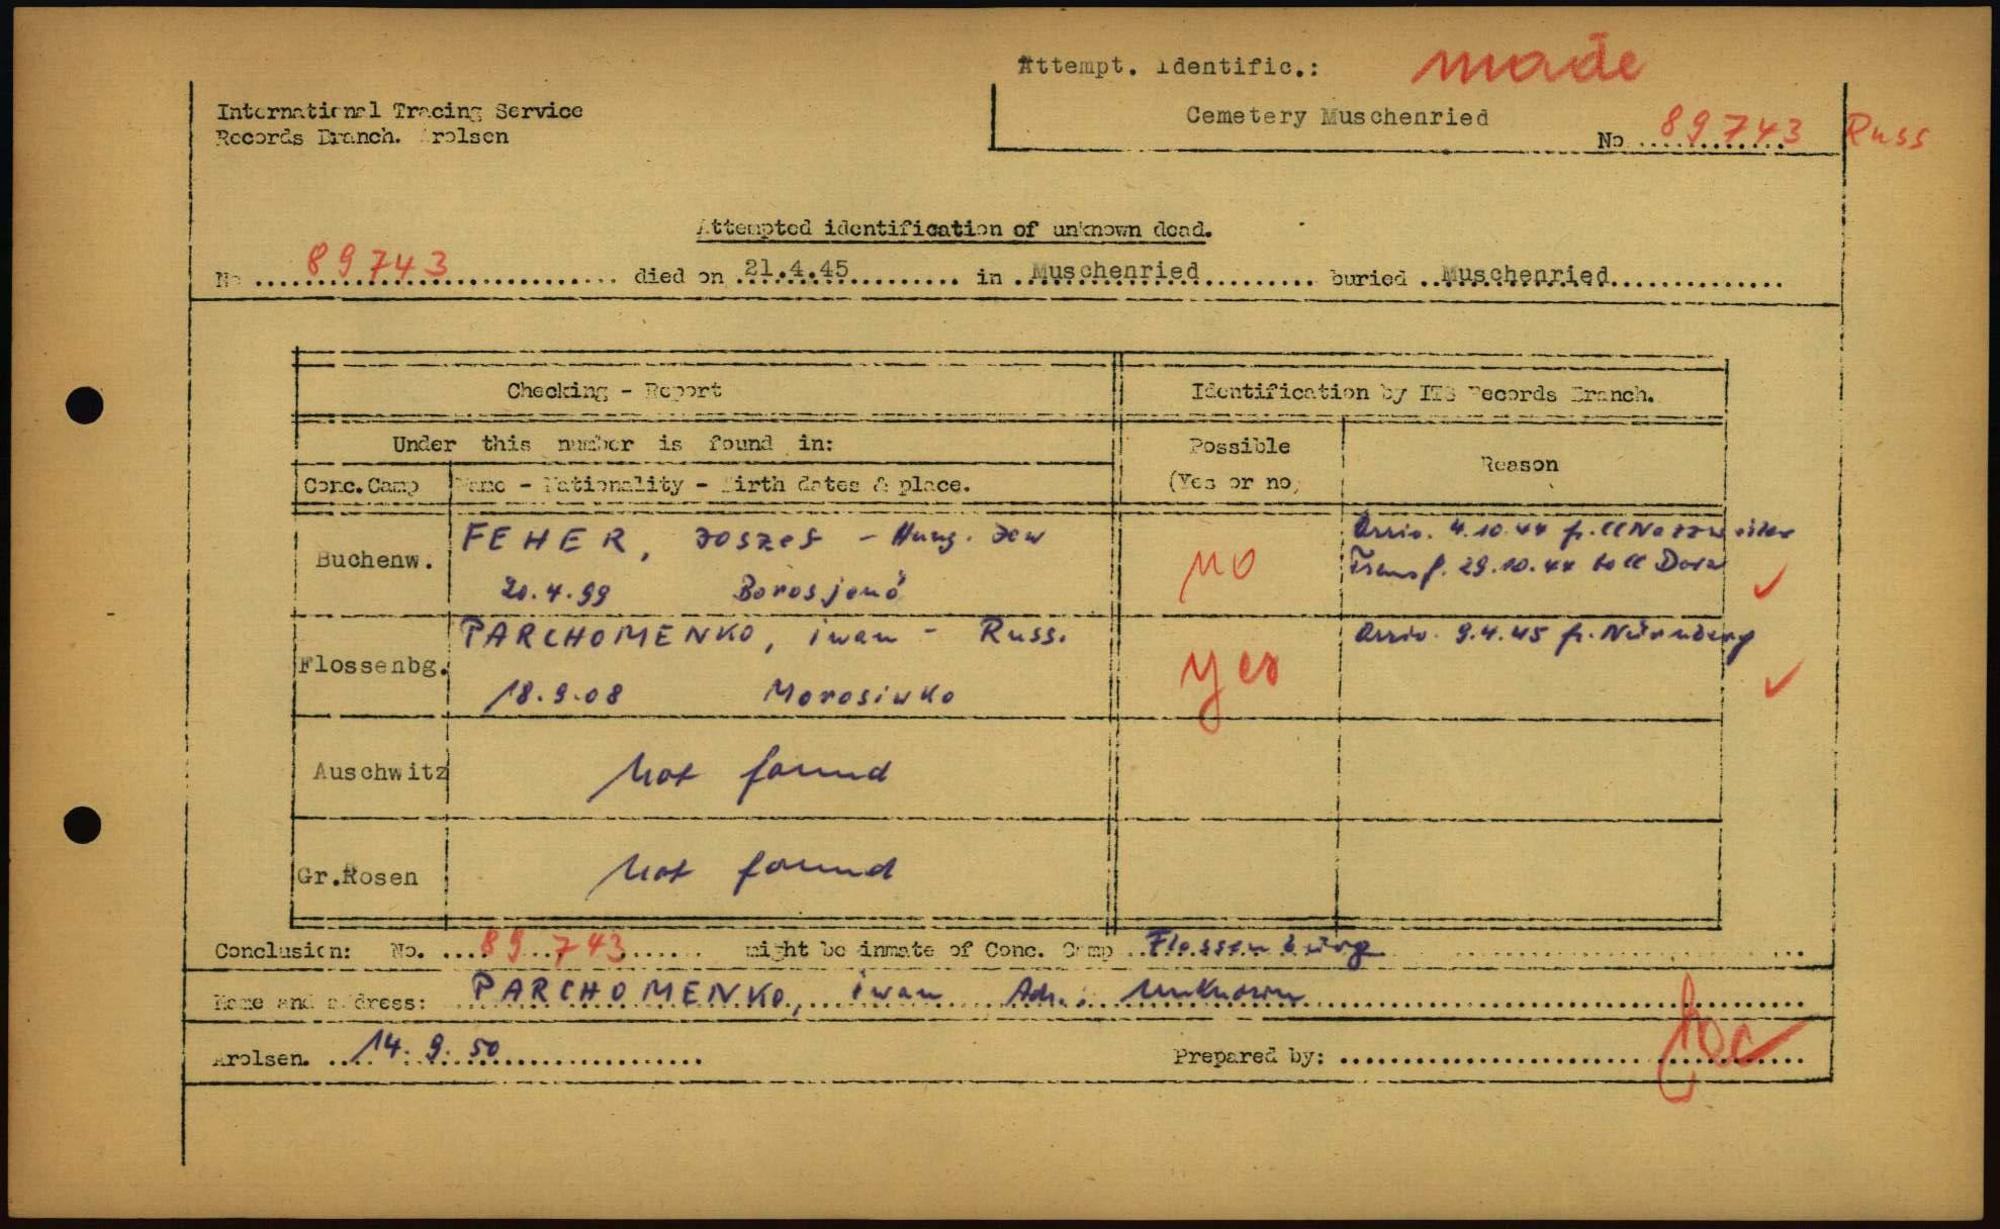 Attempt. Identific.: made
International Tracing Service
Records Branch. Arolsen
Cemetery Muschenried
No ............. 89743 Russ
Attempted identification of unknown dead.
No ....89743.... died on ..21.4.45......... in .Muschenried........ buried ..Muschenried..............
Checking - Report
Identification by ITS Records Branch.
Under this number is found in:
Possible
(Yes or no)
Reason
Conc.Camp
Name - Nationality - Birth dates & place.
Buchenw.
FEHER, Joszef - Hung. Jew
20.4.99 Borosjenö
no
Arriv. 4.10.44 fr. CC Natzweiler
Transf. 29.10.44 to CC Dora
Flossenbg.
PARCHOMENKO, iwan - Russ.
18.9.08 Morosiwko
yes
Arriv. 9.4.45 fr. Nürnberg
Auschwitz
not found
Gr.Rosen
not found
Conclusion: No. ....89.743....... might be inmate of Conc. Camp ..Flossenbürg
Name and address: PARCHOMENKO, iwan Adr.: unknown
Arolsen. ....14.9.50....................
Prepared by: ..............................